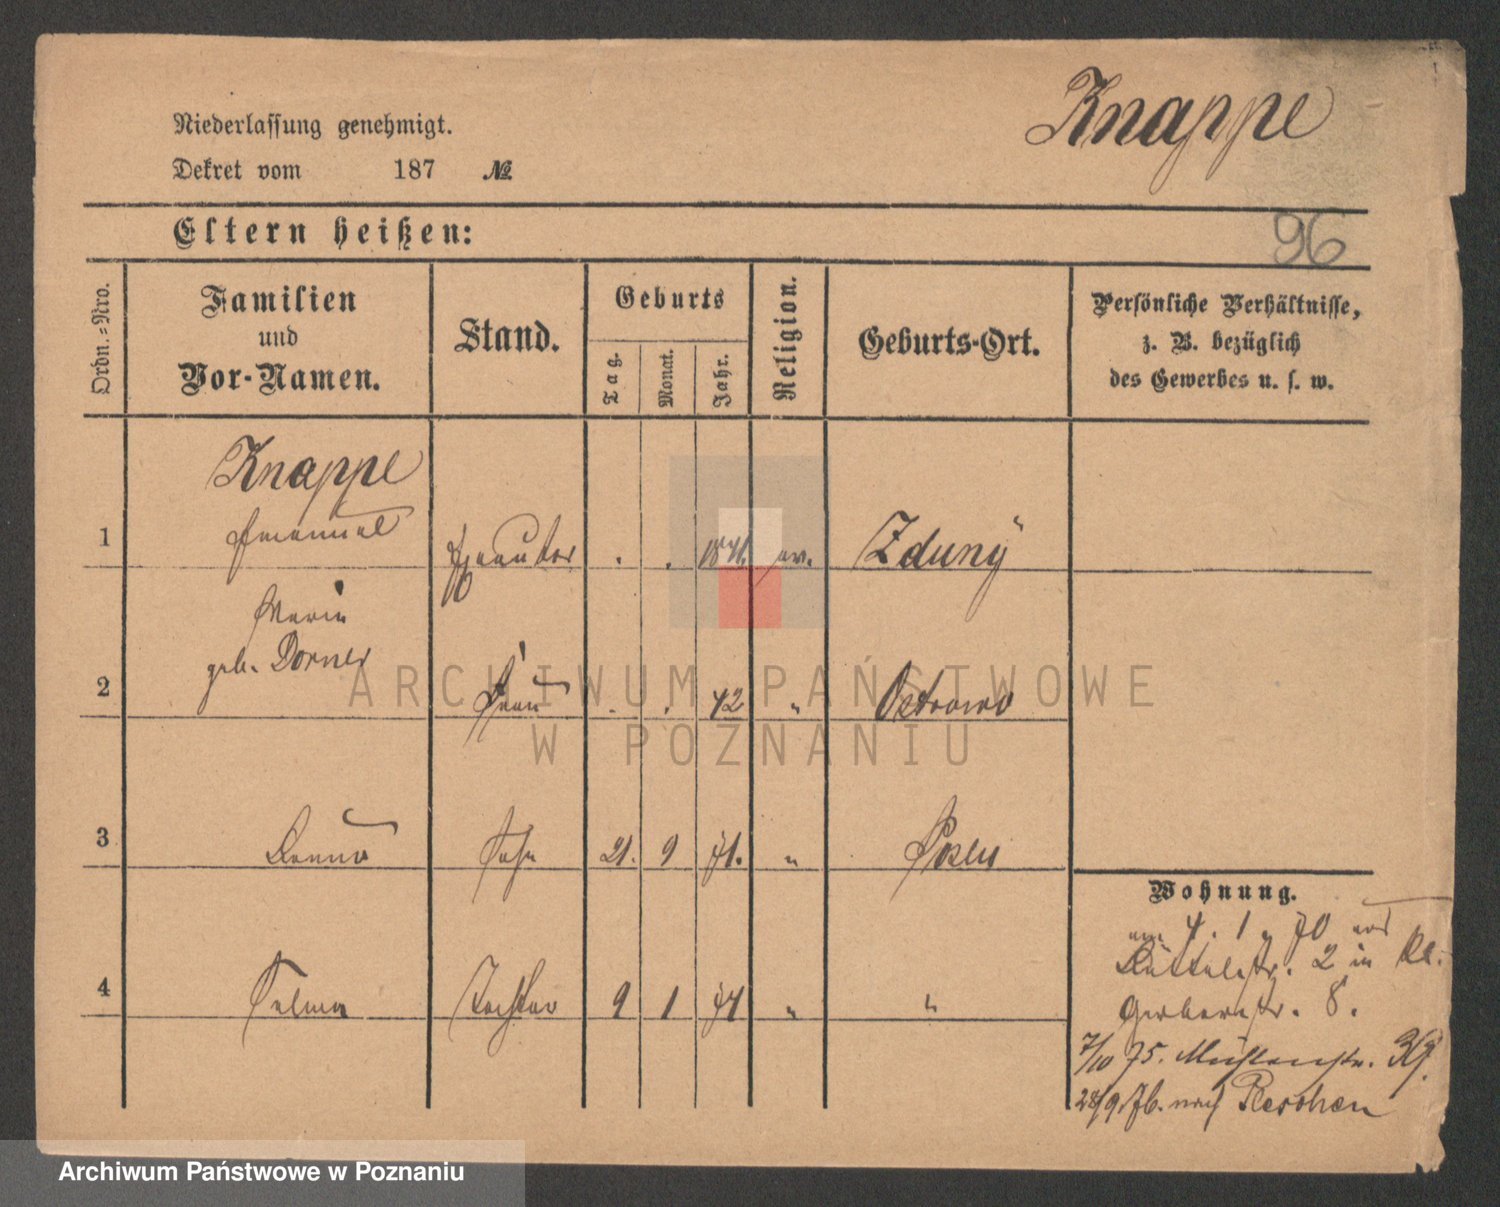 Knappe
Niederlassung genehmigt.
Dekret vom 187 №
Eltern heißen:
96
Ordn.-Nro.
Familien
und
Vor-Namen.
Stand.
Geburts
Tag.
Monat.
Jahr.
Religion.
Geburts-Ort.
Persönliche Verhältnisse,
z. B. bezüglich
des Gewerbes u. s. w.
Knappe
1 Emanuel Exekutor . . ev. Zduny
Marie
geb. Dorner
2 Frau . . 42 " Ostrowo
3 Benno Sohn 21. 9 71. " Posen
4 Selma Tochter 9 1 74 " "
Wohnung.
4. 1 70
Büttelstr. 2 in Kl.
Gerberstr. 8.
7/10 75. Mühlenstr.
28/9. 76. nach Pleschen
ARCHIWUM PAŃSTWOWE
W POZNANIU
Archiwum Państwowe w Poznaniu